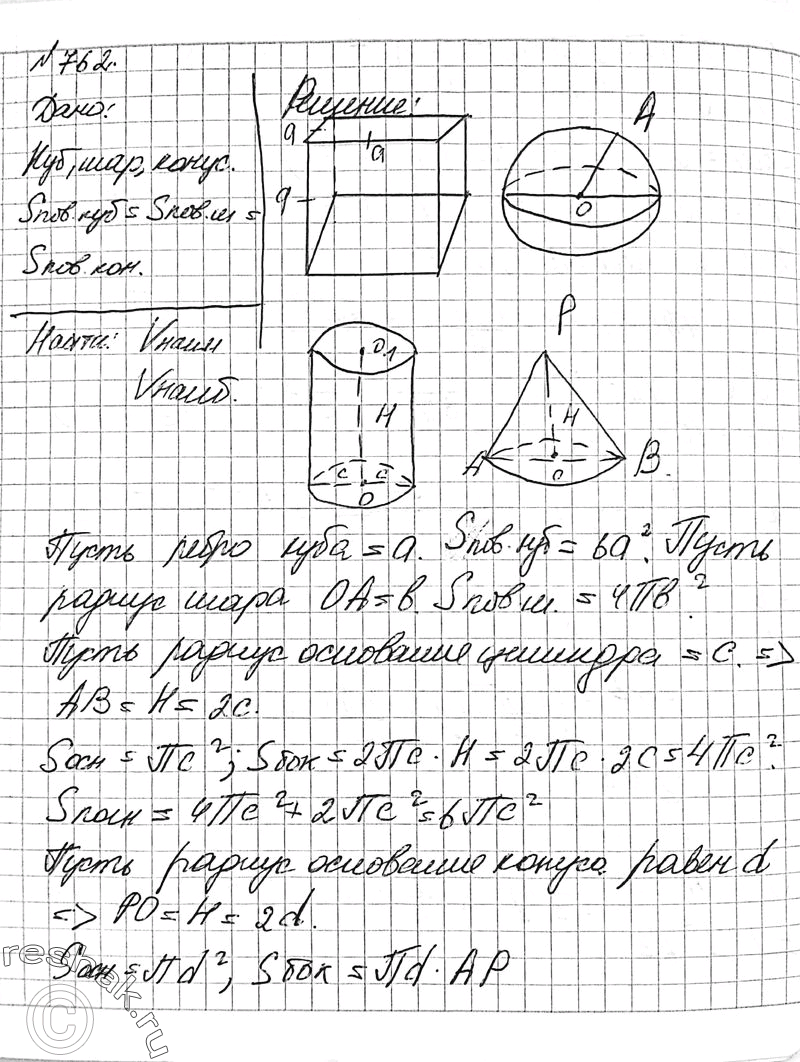 № 762.
Дано:
Куб, шар, конус.
Sпов.куб = Sпов.ш =
Sпов.кон.
Найти: Vнаим
Vнаиб.
Решение:
a
a
a
A
O
O1
H
c c
O
P
H
A
O
B.
Пусть ребро куба = a. Sпов.куб = 6a². Пусть
радиус шара OA = b. Sпов.ш. = 4Пb².
Пусть радиус основание цилиндра = c. =>
AB = H = 2c.
Sосн = Пc²; Sбок = 2Пc · H = 2Пc · 2c = 4Пc².
Sполн = 4Пc² + 2Пc² = 6Пc²
Пусть радиус основание конуса равен d
=> PO = H = 2d.
Sосн = Пd², Sбок = Пd · AP
reshak.ru
©